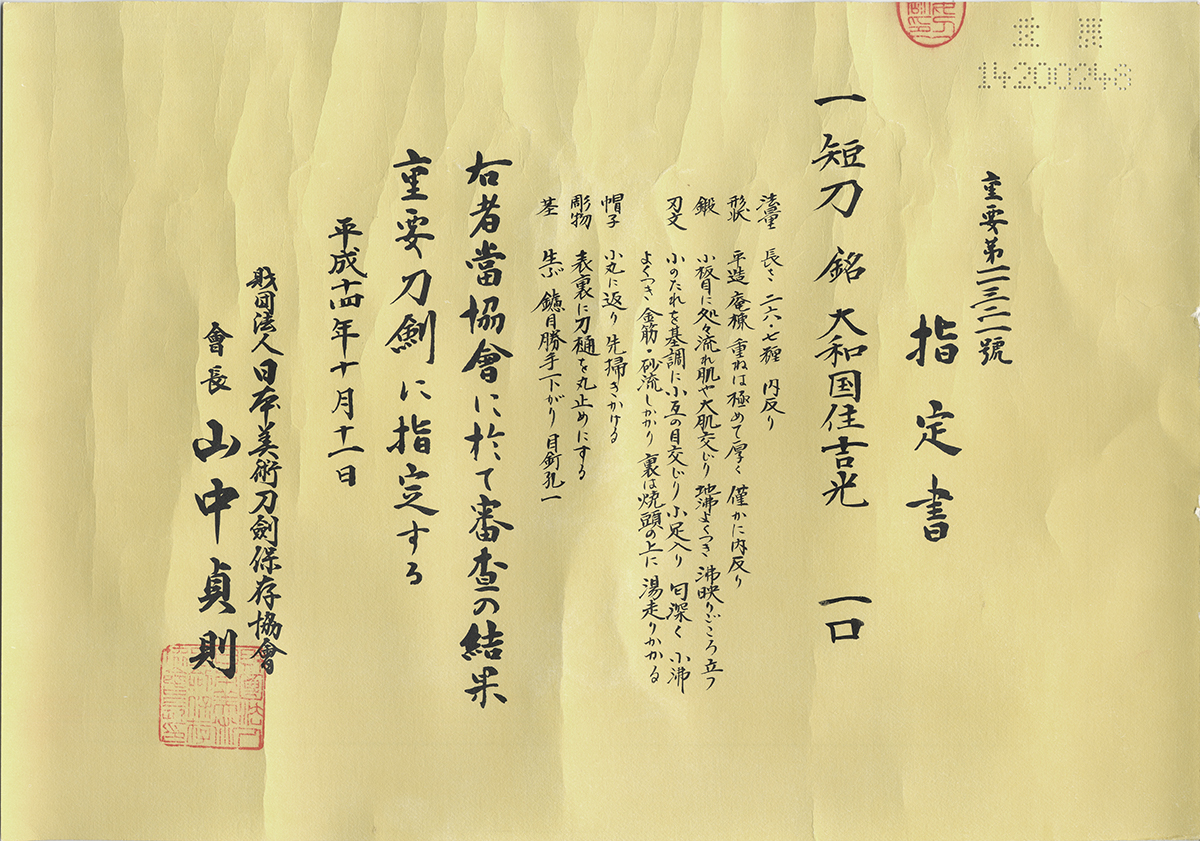 14200248
重要第一一三二一號
指定書
一 短刀 銘 大和国住吉光 一口
法量 長さ 二六・七糎 内反り
形状 平造 庵棟 重ねは極めて厚く 僅かに内反り
鍛 小板目に処々流れ肌や大肌交じり 地沸よくつき 沸映りごころ立つ
刃文 小のたれを基調に小互の目交じり 小足入り 匂深く 小沸
よくつき 金筋・砂流しかかり 裏は焼頭の上に 湯走りかかる
帽子 小丸に返り 先掃きかける
彫物 表裏に刀樋を丸止めにする
茎 生ぶ 鑢目勝手下がり 目釘孔一
右者當協會に於て審査の結果
重要刀劍に指定する
平成十四年十月十一日
財団法人日本美術刀劍保存協會
會長 山中貞則